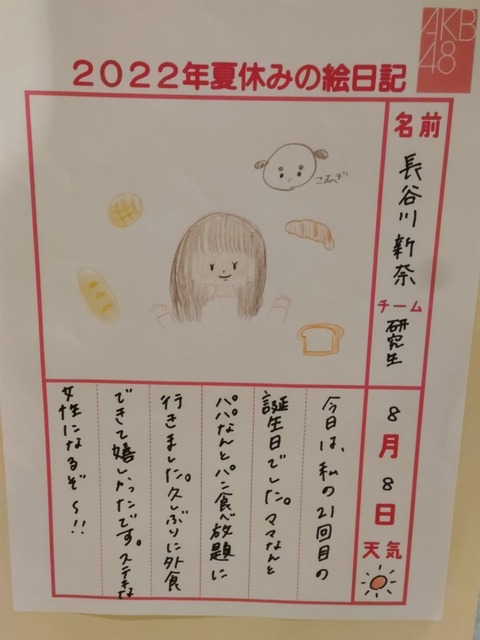 AKB
48
2022年夏休みの絵日記
名前
長谷川新奈
チーム
研究生
8月8日
天気
こむぎ
今日は、私の21回目の
誕生日でした。ママなんと
パパなんとパン食べ放題に
行きました。久しぶりに外食
できて嬉しかったです。ステキな
女性になるぞ〜!!